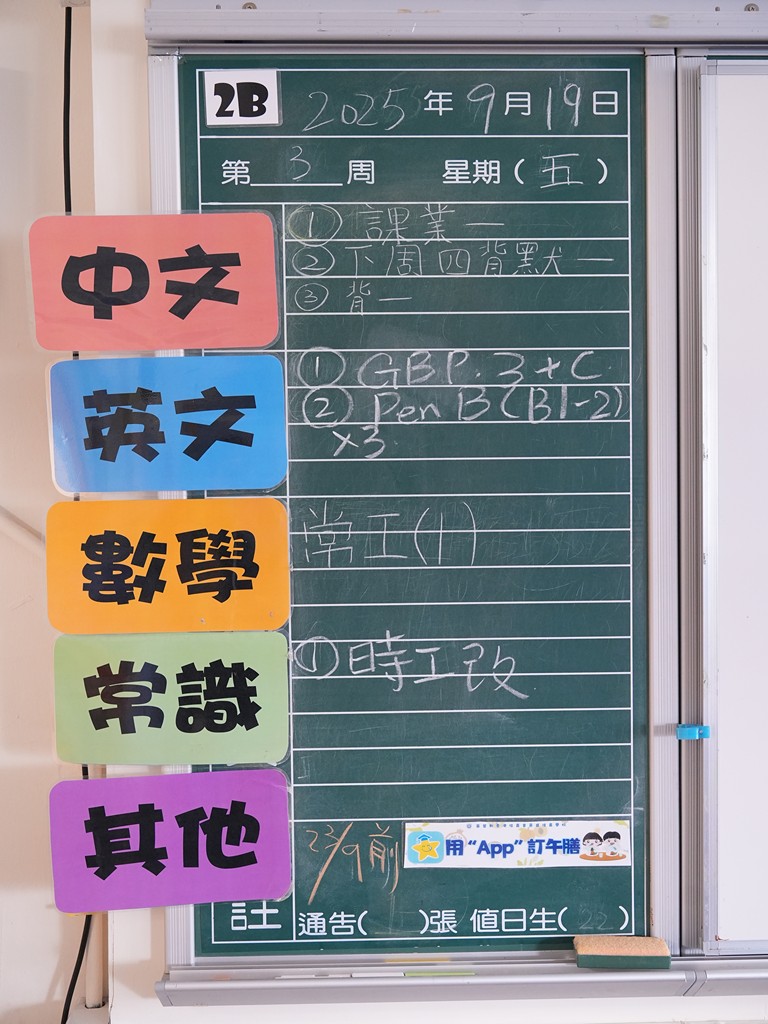 2B 2025年9月19日
第 3 周 星期(五)
中文
① 課業一
② 下周四背默一
③ 背一
英文
① GBP. 3 + C.
② Pen B (B1-2)
×3.
數學
常工(十)
常識
① 時工改
其他
23/9前
用“App”訂午膳
註
通告( )張 值日生(22)